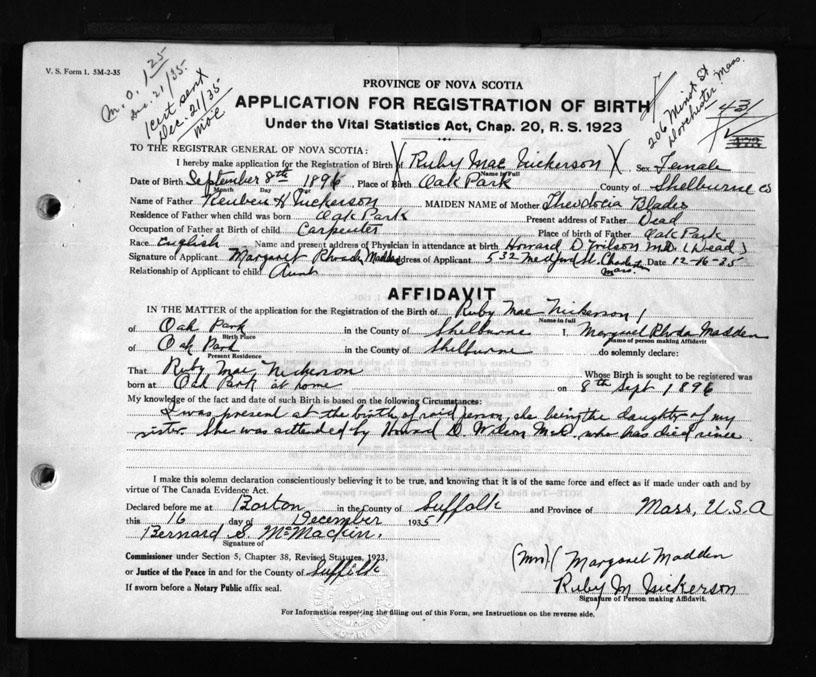 V. S. Form 1. 5M-2-35
M. O. 1.25
Dec. 21/35.
1 cert sent
Dec. 21/35
206 Minot St
Dorchester Mass.
431
PROVINCE OF NOVA SCOTIA
APPLICATION FOR REGISTRATION OF BIRTH
Under the Vital Statistics Act, Chap. 20, R. S. 1923
TO THE REGISTRAR GENERAL OF NOVA SCOTIA:
I hereby make application for the Registration of Birth of Ruby Mae Nickerson Sex Female
Name in Full
Date of Birth September 8th 1896, Place of Birth Oak Park County of Shelburne Co
Month Day
Name of Father Reuben H Nickerson MAIDEN NAME of Mother Theodocia Blades
Residence of Father when child was born Oak Park Present address of Father Dead
Occupation of Father at Birth of child Carpenter Place of birth of Father Oak Park
Race English Name and present address of Physician in attendance at birth Howard D Wilson MD (Dead)
Signature of Applicant Margaret Rhoda Madden Address of Applicant 532 Medford St. Charlestn Mass. Date 12-16-35
Relationship of Applicant to child Aunt
AFFIDAVIT
IN THE MATTER of the application for the Registration of the Birth of Ruby Mae Nickerson
Name in full
of Oak Park in the County of Shelburne I, Margaret Rhoda Madden
Birth Place Name of person making Affidavit
of Oak Park in the County of Shelburne do solemnly declare:
Present Residence
That Ruby Mae Nickerson Whose Birth is sought to be registered was
born at Oak Park at home on 8th Sept 1896
My knowledge of the fact and date of such Birth is based on the following Circumstances:
I was present at the birth of said person, she being the daughter of my
sister. She was attended by Howard D. Wilson M.D. who has died since
I make this solemn declaration conscientiously believing it to be true, and knowing that it is of the same force and effect as if made under oath and by
virtue of The Canada Evidence Act.
Declared before me at Boston in the County of Suffolk and Province of Mass, U.S.A
this 16 day of December 1935
Bernard S. McMackin.
Signature of
Commissioner under Section 5, Chapter 38, Revised Statutes, 1923,
or Justice of the Peace in and for the County of Suffolk
If sworn before a Notary Public affix seal.
(Mrs) Margaret Madden
Ruby M Nickerson
Signature of Person making Affidavit.
For Information respecting the filling out of this Form, see Instructions on the reverse side.